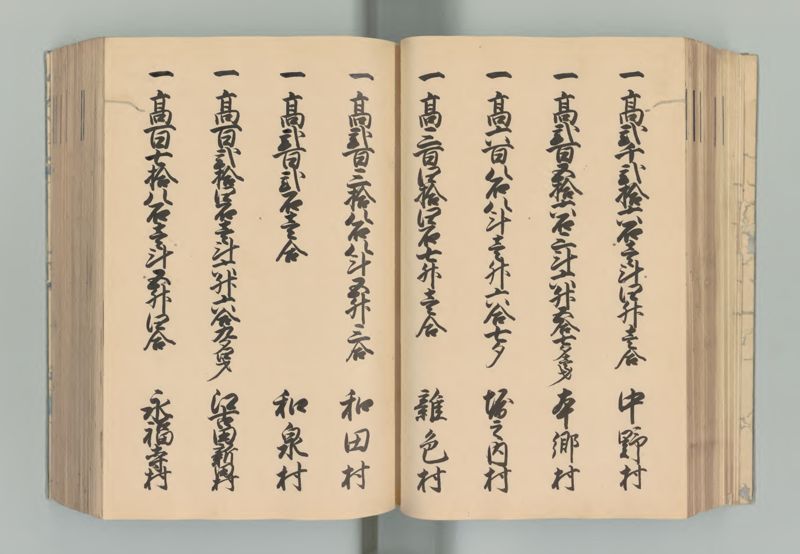 一 髙弐千弐拾六石壱斗四升壱合 中野村
一 髙弐百五拾六石三斗六升五合七夕 本郷村
一 髙六百八石八斗壱升六合七夕 堀之内村
一 髙三百四拾四石七升壱合 雜色村
一 髙弐百三拾八石八斗五升三合 和田村
一 髙弐百弐石壱合 和泉村
一 髙百弐拾四石壱斗六升六合九夕 江古田新村
一 髙百七拾八石壱斗五升四合 永福寺村